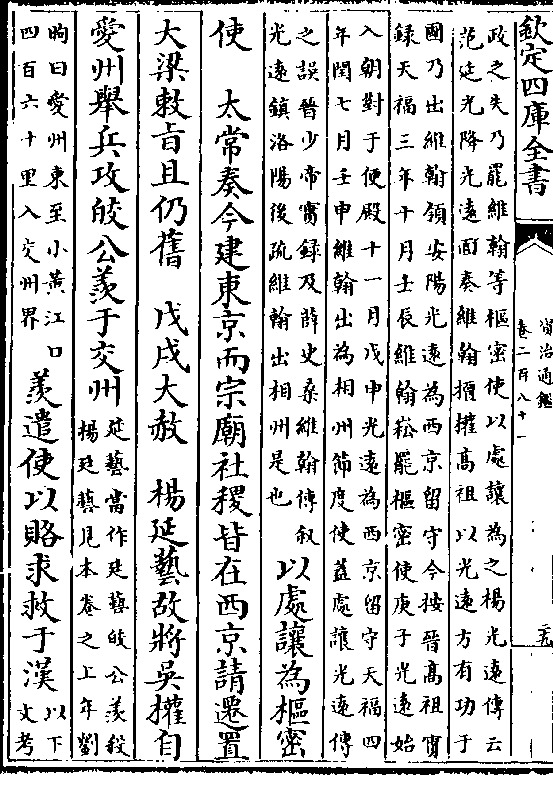 欽定四庫全書
資治通鑑
卷二百八十一
政之失乃罷維翰等樞密使以處讓為之楊光遠傳云
范延光降光遠面奏維翰擅權高祖以光遠方有功于
國乃出維翰領安陽光遠為西京留守今按晉高祖實
録天福三年十月壬辰維翰崧罷樞密使庚子光遠始
入朝對于便殿十一月戊申光遠為西京留守天福四
年閏七月壬申維翰出為相州節度使蓋處讓光遠傳
之誤晉少帝實録及薛史桑維翰傳叙
光遠鎮洛陽後疏維翰出相州是也
以處讓為樞密
使 太常奏今建東京而宗廟社稷皆在西京請遷置
大梁敕旨且仍舊 戊戌大赦 楊延藝故將吳權自
愛州舉兵攻皎公羨于交州
延藝當作廷藝皎公羨殺
楊廷藝見本卷之上年劉
昫曰愛州東至小黃江口
四百六十里入交州界
羨遣使以賂求救于漢
以下
文考